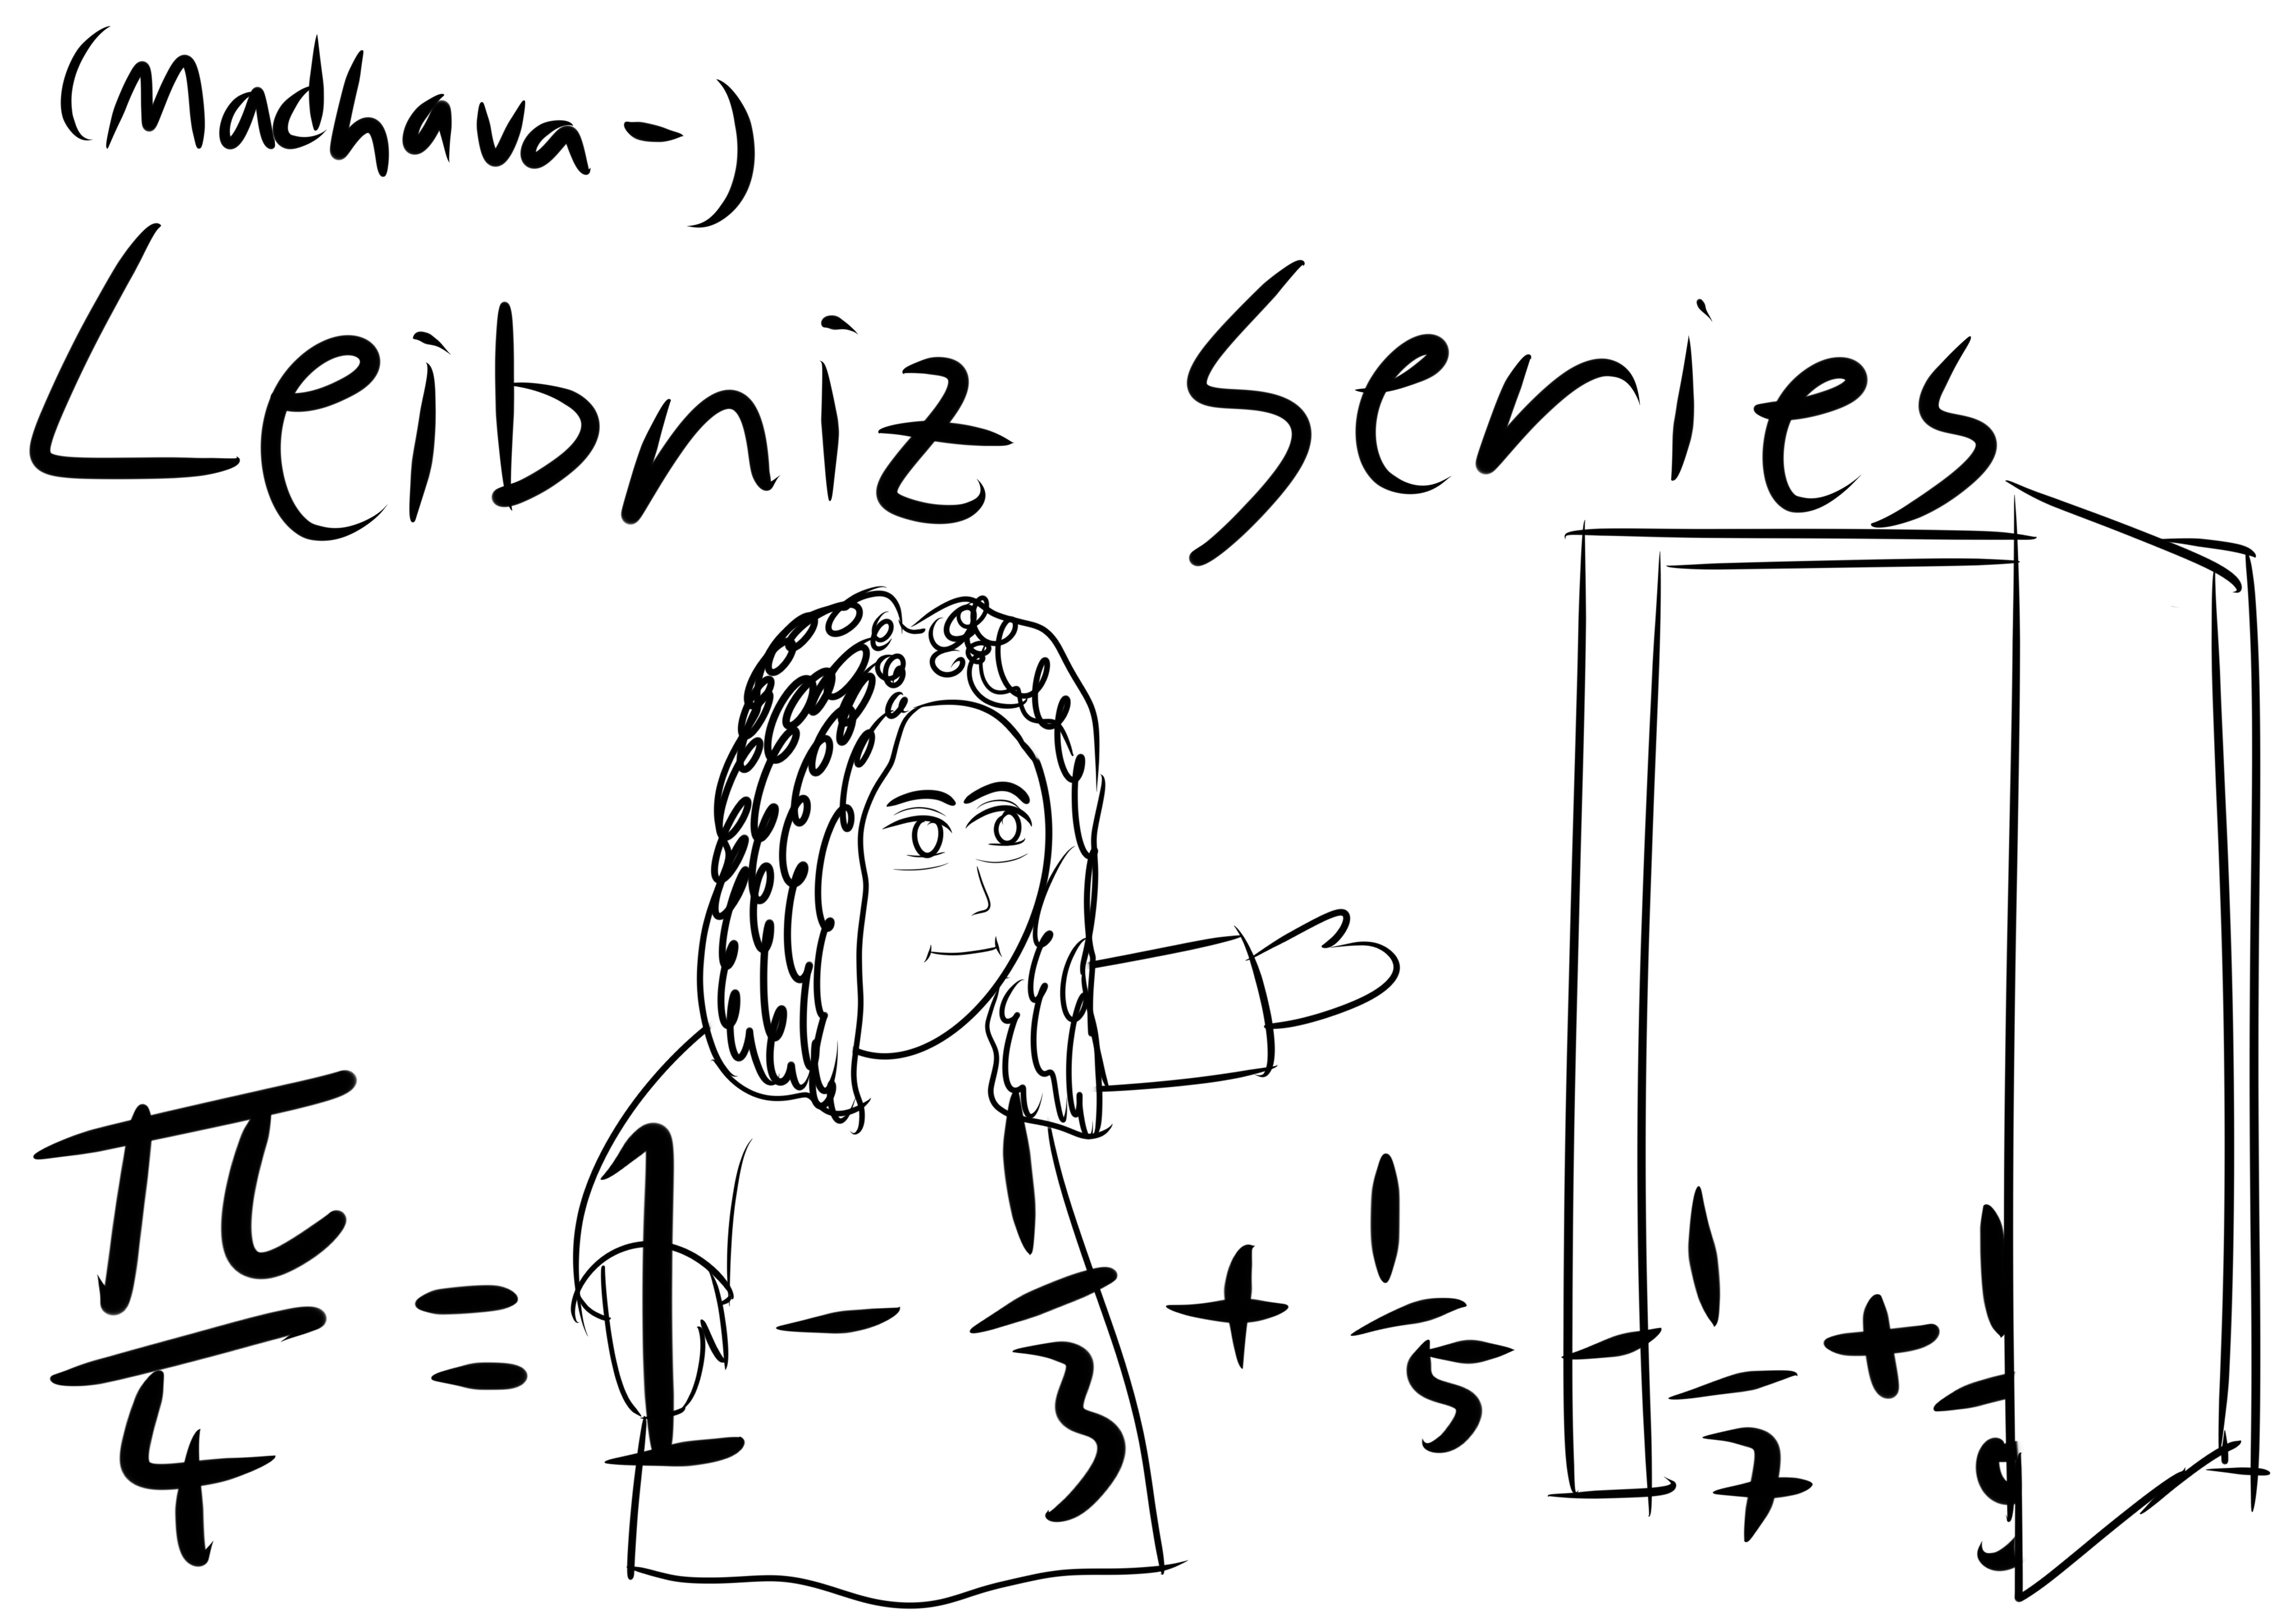 (Madhava-)
Leibniz Series
π/4 = 1 - 1/3 + 1/5 - 1/7 + 1/9